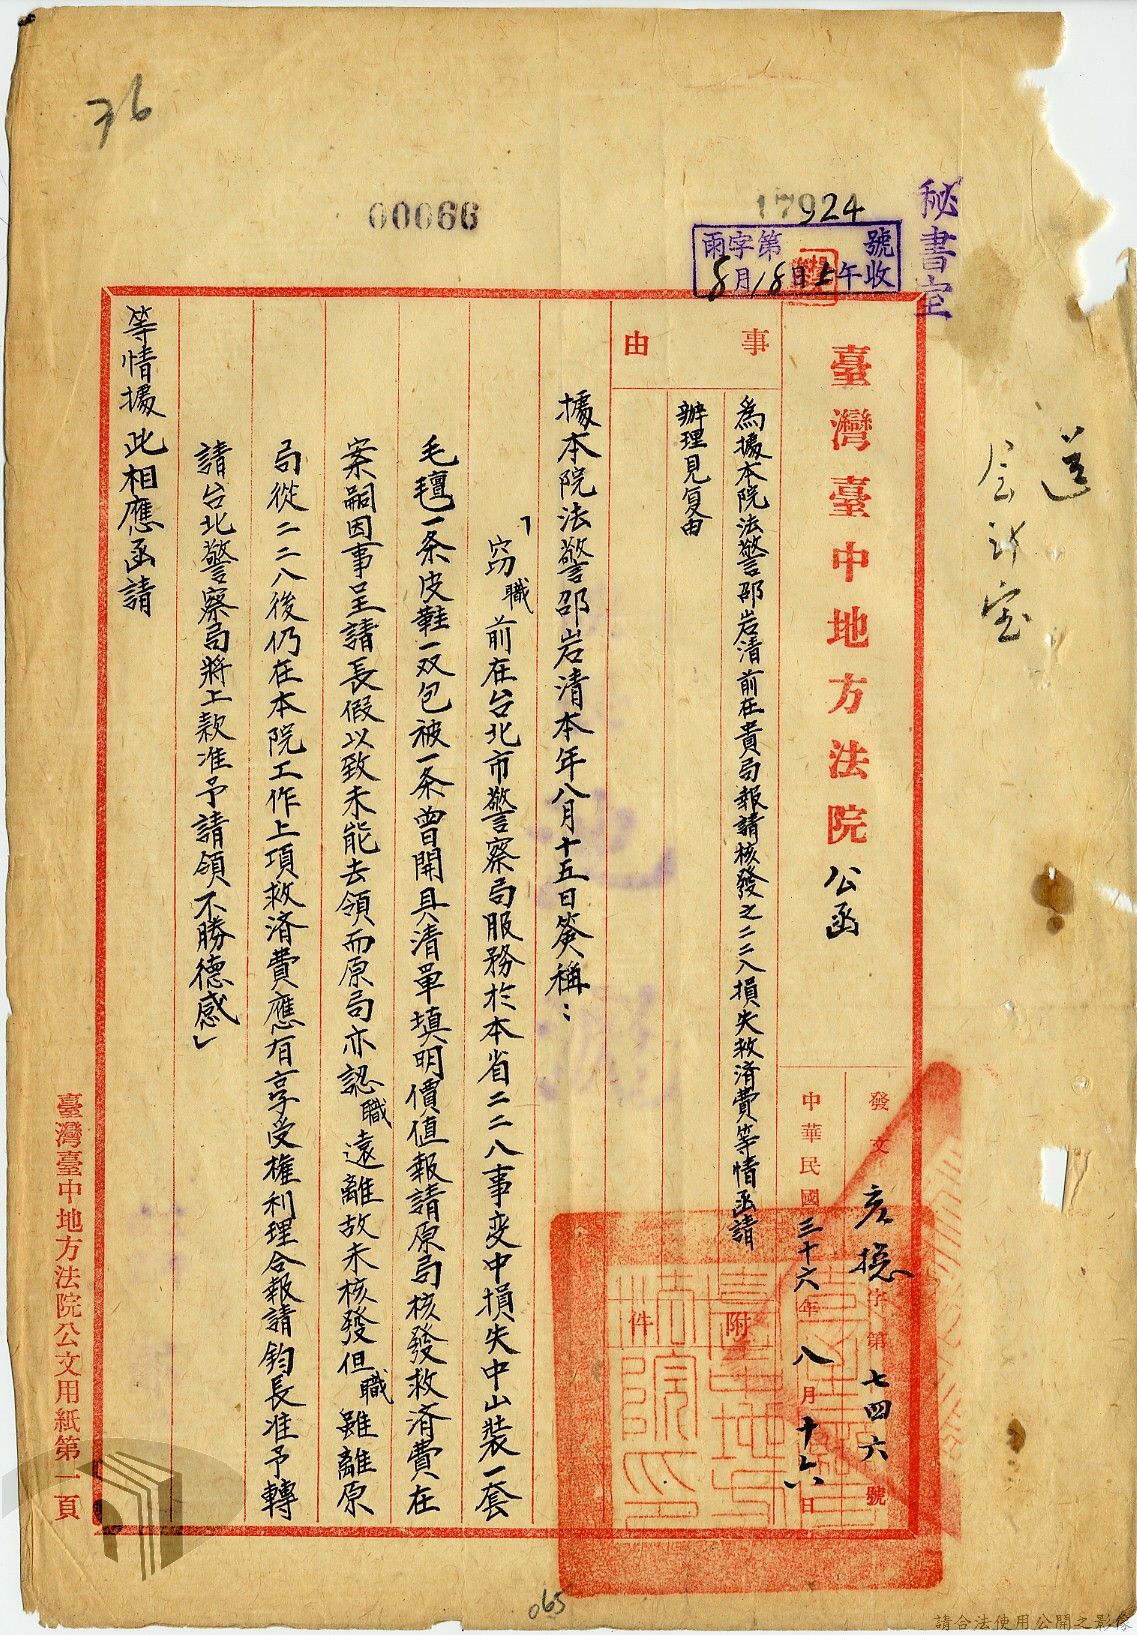 36
00066
17924
雨字第 號
8月18日上午收
秘書室
送
会計室
臺灣臺中地方法院公函
發文 字第七四六號
中華民國三十六年八月十六日
附件
事由
為據本院法警邵岩清前在貴局報請核發之二二八損失救済費等情函請
辦理見复由
據本院法警邵岩清本年八月十五日簽稱：
「窃職前在台北市警察局服務於本省二二八事变中損失中山装一套
毛氊一条皮鞋一双包被一条曾開具清單填明價值報請原局核發救済費在
案嗣因事呈請長假以致未能去領而原局亦認職遠離故未核發但職雖離原
局從二二八後仍在本院工作上項救済費應有享受權利理合報請鈞長准予轉
請台北警察局將上款准予請領不勝德感」
等情據此相應函請
臺灣臺中地方法院公文用紙第一頁
065
請合法使用公開之影像